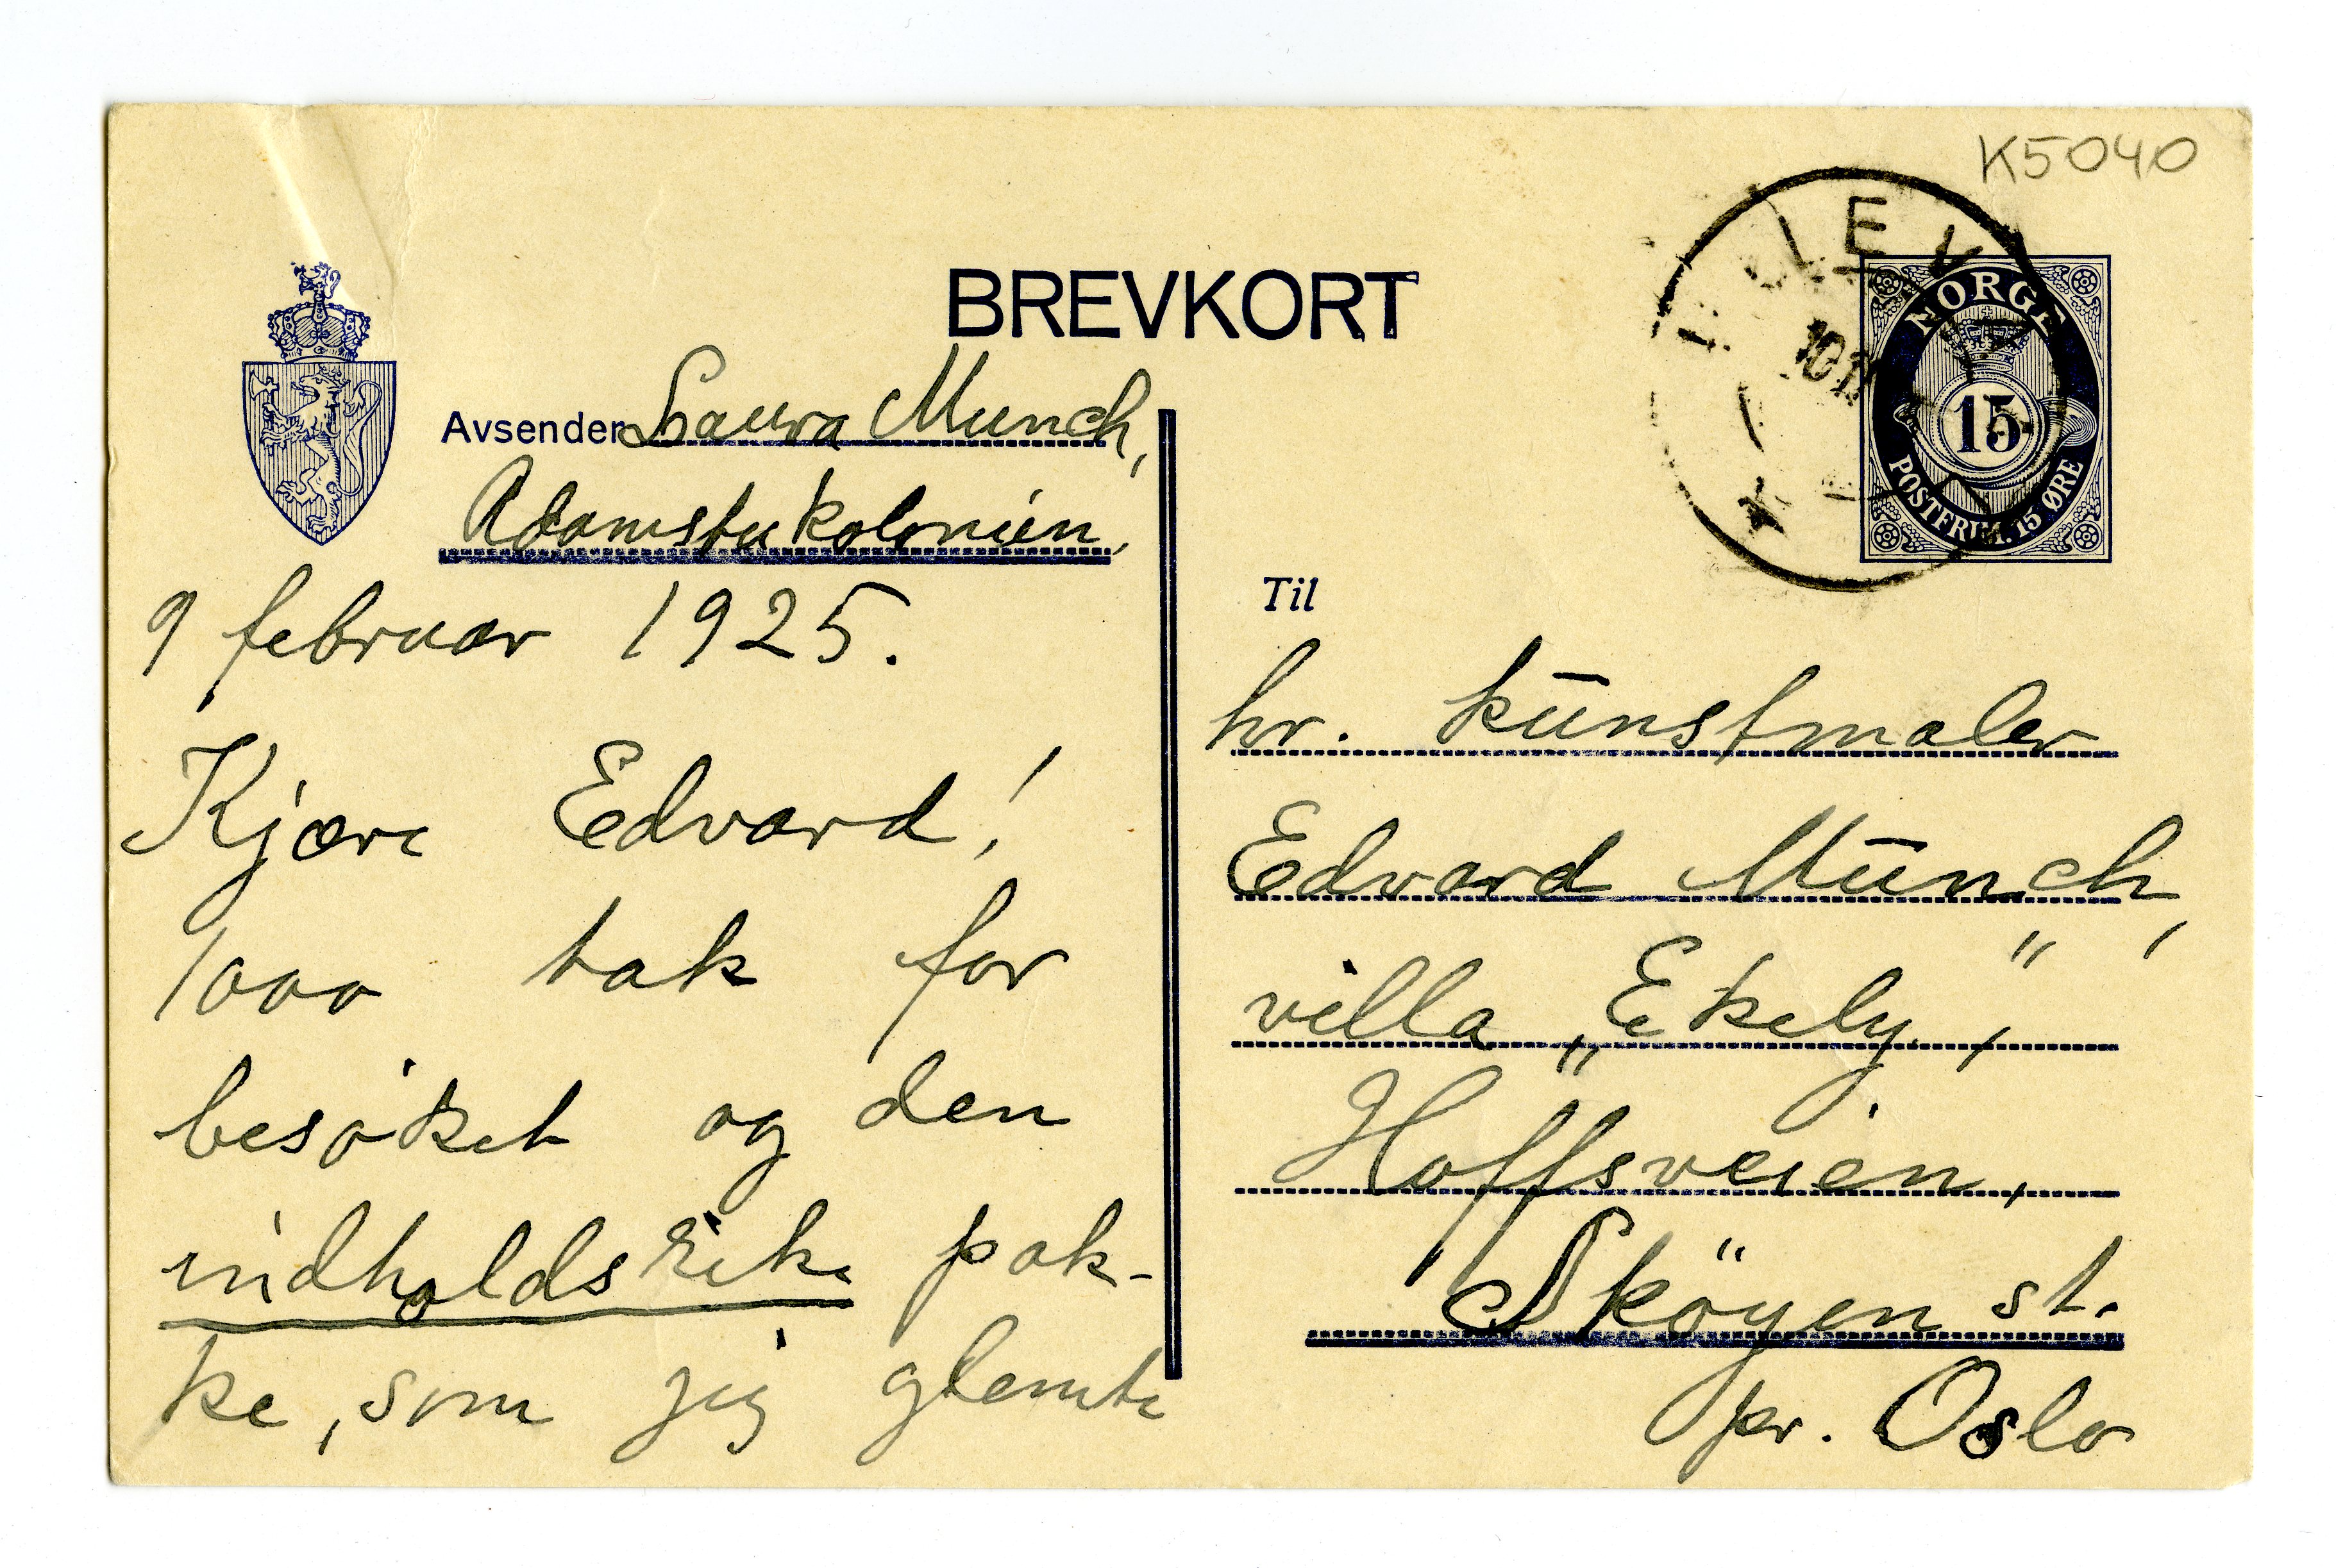 K5040
BREVKORT
NORGE
15
POSTFRIM. 15 ØRE
Avsender Laura Munch,
Adamstukolonien,
9 februar 1925.
Kjære Edvard!
1000 tak for
besøket og den
indholdsrike pak-
ke, som jeg glemte
Til
hr. kunstmaler
Edvard Munch,
villa „Ekely",
Hoffsveien,
Sköyen st.
pr. Oslo